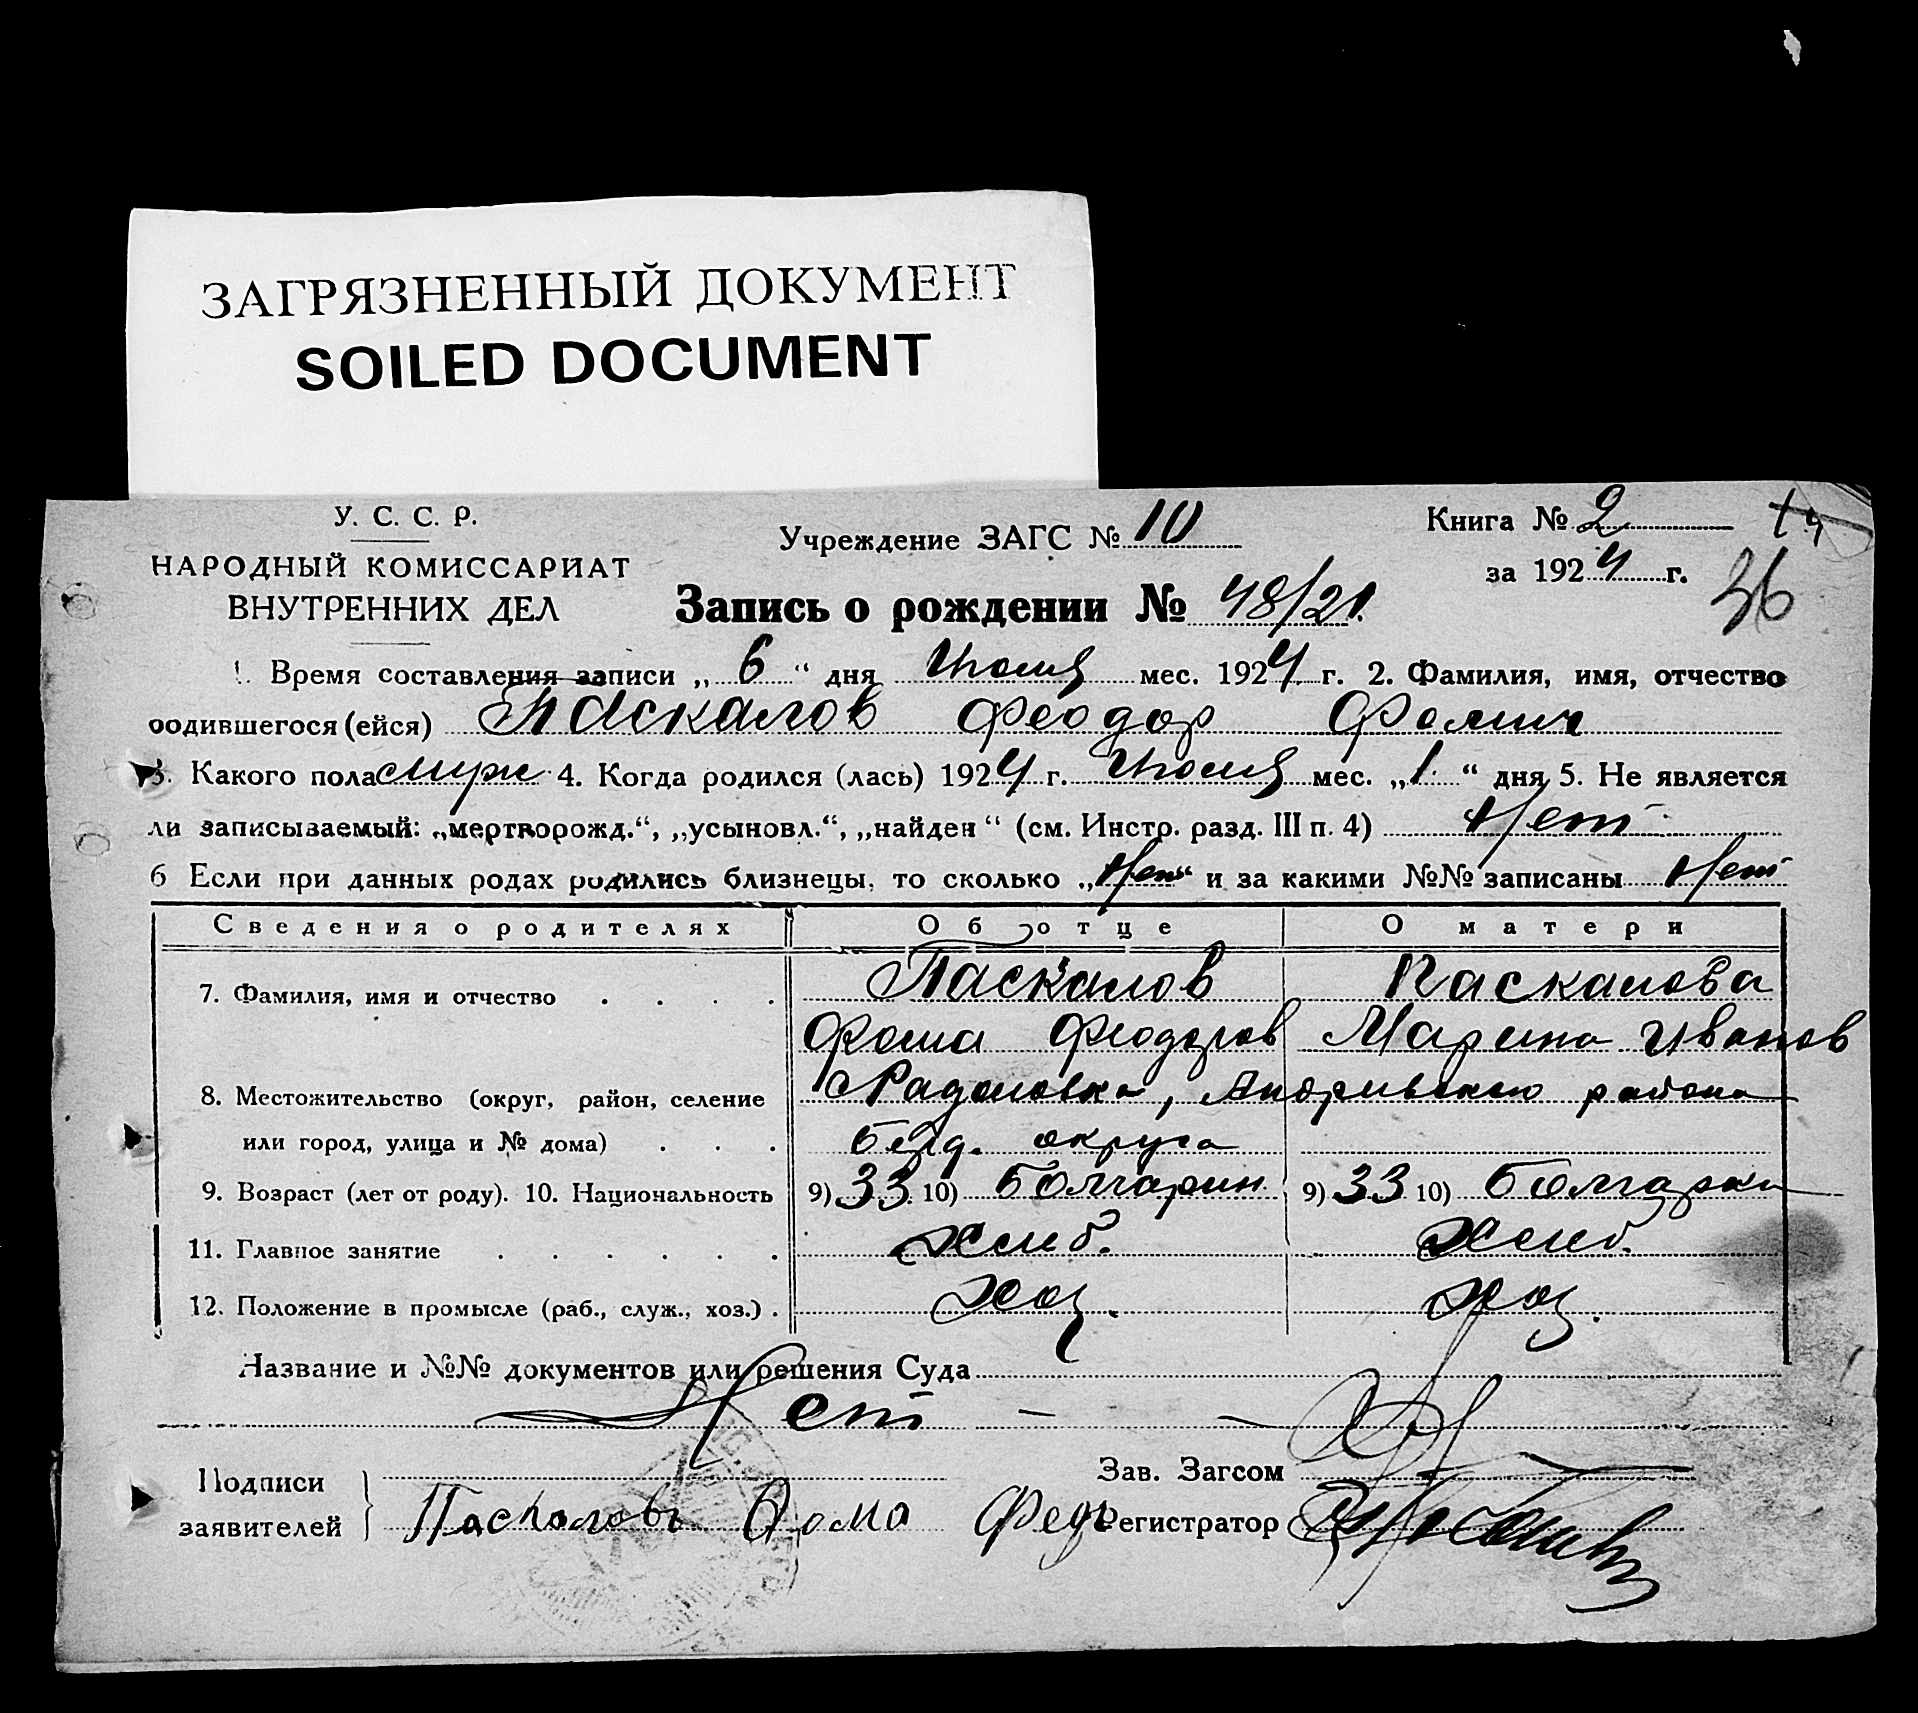 ЗАГРЯЗНЕННЫЙ ДОКУМЕНТ
SOILED DOCUMENT
У. С. С. Р.
НАРОДНЫЙ КОМИССАРИАТ
ВНУТРЕННИХ ДЕЛ
Учреждение ЗАГС № 10
Книга № 2
за 1924 г.
36
Запись о рождении № 48/21.
1. Время составления записи „ 6 “ дня Июля мес. 1924 г. 2. Фамилия, имя, отчество
родившегося (ейся) Паскалов Феодор Фомич
3. Какого пола муж 4. Когда родился (лась) 1924 г. Июля мес. „ 1 “ дня 5. Не является
ли записываемый: „мертворожд.“, „усыновл.“, „найден“ (см. Инстр. разд. III п. 4) Нет
6 Если при данных родах родились близнецы, то сколько „Нет“ и за какими №№ записаны Нет
Сведения о родителях Об отце О матери
7. Фамилия, имя и отчество . . . . Паскалов Паскалова
Фома Феодоров Марина Иванов
8. Местожительство (округ, район, селение
или город, улица и № дома) . . .
района
округа
9. Возраст (лет от роду). 10. Национальность 9) 33 10) Болгарин 9) 33 10) Болгарка
11. Главное занятие . . . . . . Хлеб. Хлеб.
12. Положение в промысле (раб., служ., хоз.) . хоз. хоз.
Название и №№ документов или решения Суда
Нет
Подписи
заявителей
Паскаловъ Фома Федр
Зав. Загсом
Регистратор